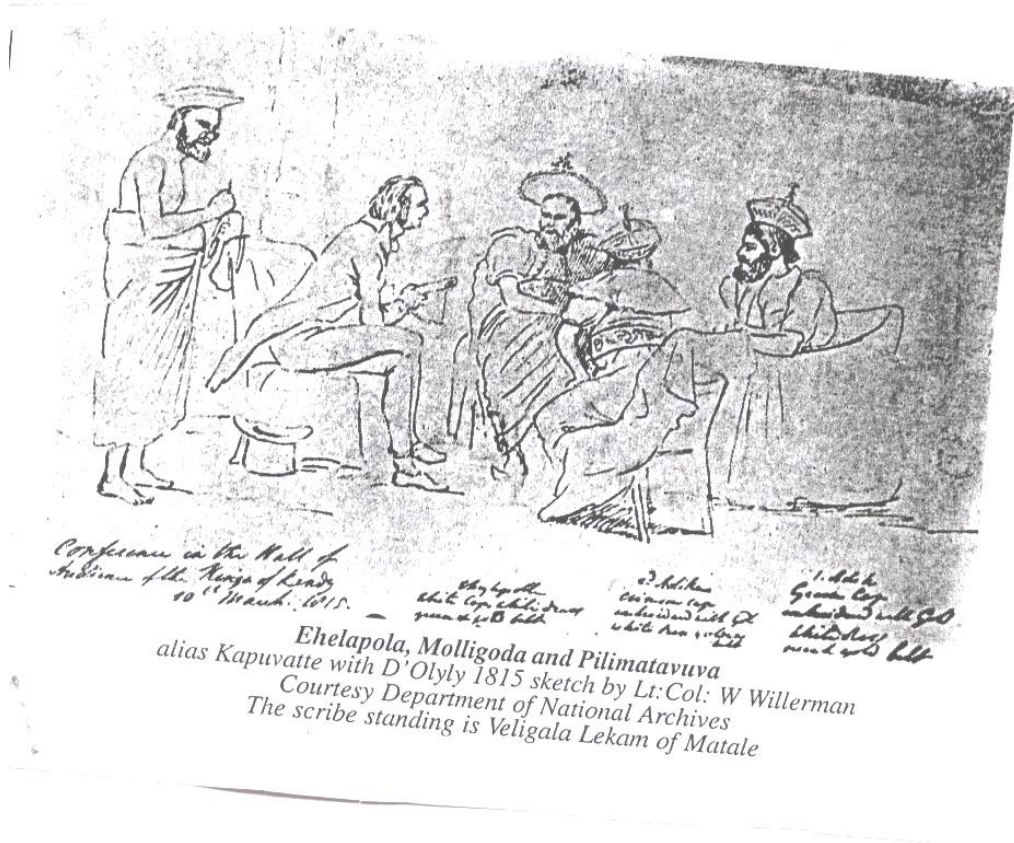 Conference in the Hall of
Audience of the Kings of Kandy
10th March. 1815.
Ehylapolle
white Cap, white dress
green & gold belt
2d Adikar
Crimson Cap
embroidered with Gold
white
belt
1. Adik
Green Cap
embroidered with Gold
White Dress
red & gold belt
Ehelapola, Molligoda and Pilimatavuva
alias Kapuvatte with D'Olyly 1815 sketch by Lt:Col: W Willerman
Courtesy Department of National Archives
The scribe standing is Veligala Lekam of Matale